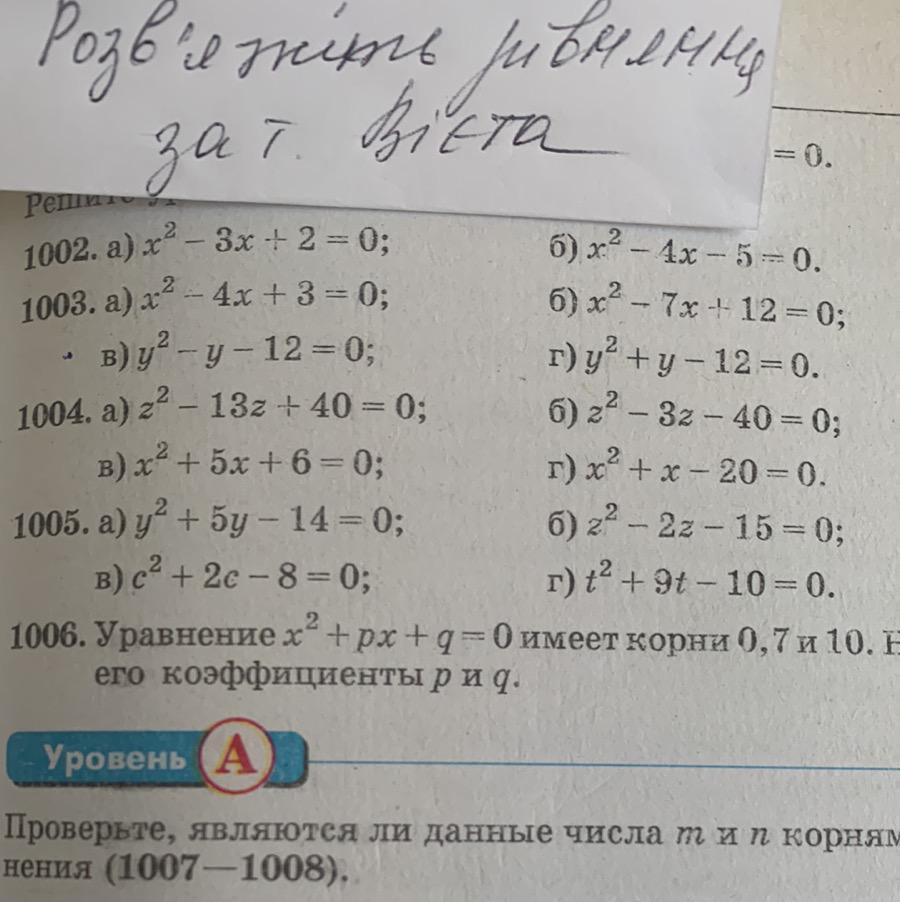 Розв'яжіть рівняння
за т. Вієта
= 0.
1002. а) x² − 3x + 2 = 0; б) x² − 4x − 5 = 0.
1003. а) x² − 4x + 3 = 0; б) x² − 7x + 12 = 0;
в) y² − y − 12 = 0; г) y² + y − 12 = 0.
1004. а) z² − 13z + 40 = 0; б) z² − 3z − 40 = 0;
в) x² + 5x + 6 = 0; г) x² + x − 20 = 0.
1005. а) y² + 5y − 14 = 0; б) z² − 2z − 15 = 0;
в) c² + 2c − 8 = 0; г) t² + 9t − 10 = 0.
1006. Уравнение x² + px + q = 0 имеет корни 0,7 и 10.
его коэффициенты p и q.
Уровень А
Проверьте, являются ли данные числа m и n корням
нения (1007—1008).